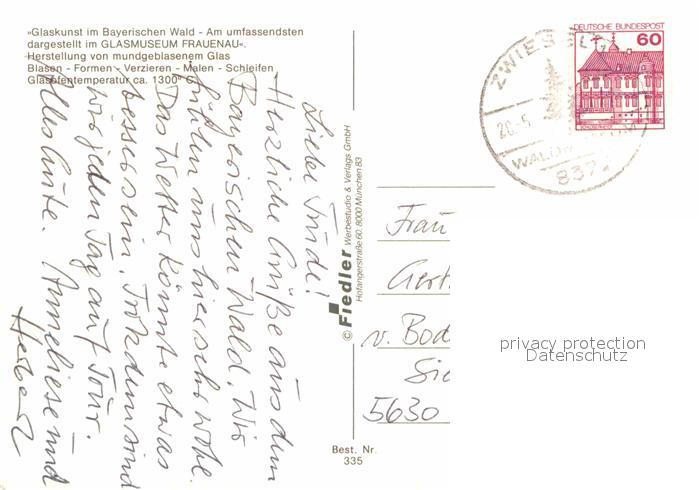 »Glaskunst im Bayerischen Wald - Am umfassendsten
dargestellt im GLASMUSEUM FRAUENAU«.
Herstellung von mundgeblasenem Glas
Blasen - Formen - Verzieren - Malen - Schleifen
Glasofentemperatur ca. 1300° C
Liebe Trude!
Herzliche Grüße aus dem
Bayerischen Wald. Wir
fühlen uns hier sehr wohl.
Das Wetter könnte etwas
besser sein. Trotzdem sind
wir jeden Tag auf Tour.
Alles Gute. Anneliese und
Herbert
© Fiedler Werbestudio & Verlags GmbH
Hofangerstraße 60, 8000 München 83
Best. Nr.
335
DEUTSCHE BUNDESPOST
60
ZWIESEL
20.-5.
WALDM
837
Frau
Gert
v. Bod
Sie
5630
privacy protection
Datenschutz